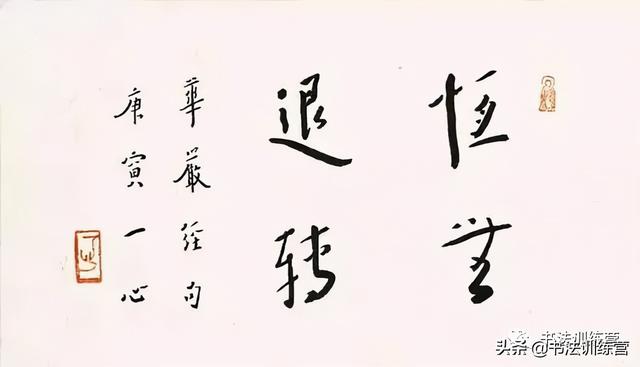 恆無
退轉
華嚴經句
庚寅一心
书法训练营
头条 @书法训练营